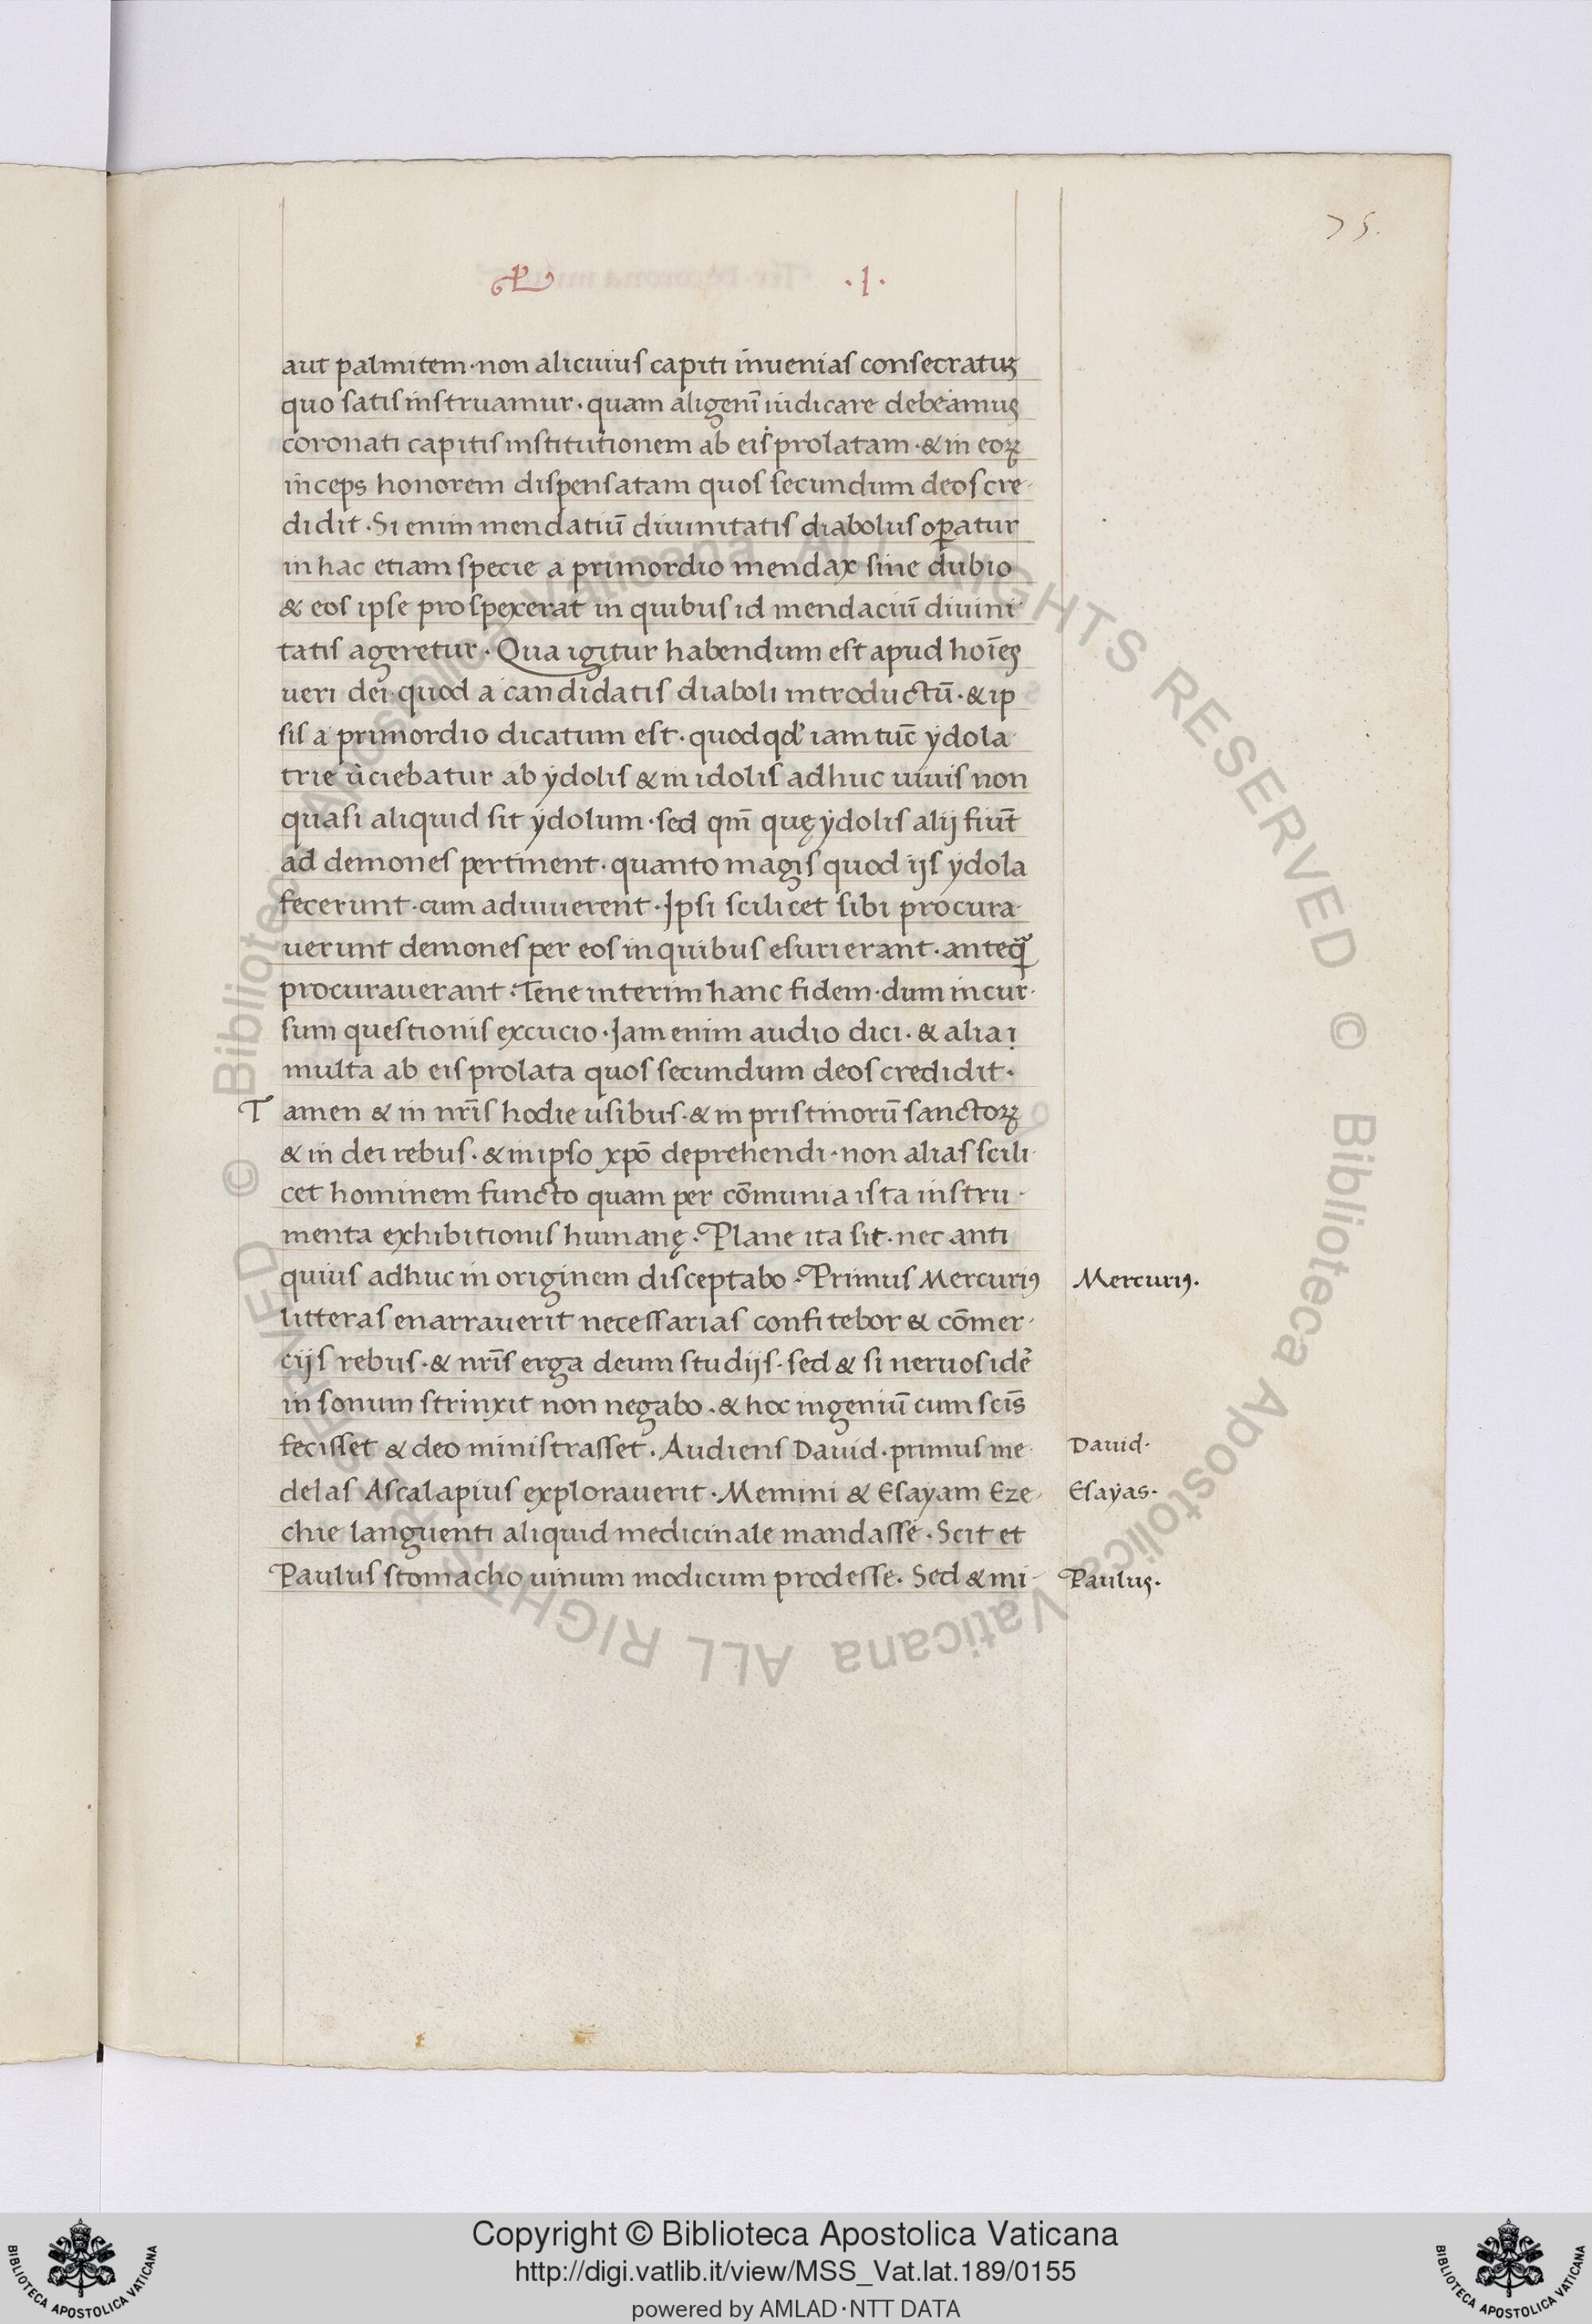 75.
.I.
aut palmitem · non alicuius capiti inuenias consecratuȝ
quo satis instruamur · quam aligeni᷑ iudicare debeamus
coronati capitis institutionem ab eis prolatam · & in eoꝝ
inceps honorem dispensatam quos secundum deos cre-
didit · Si enim mendatiū diuinitatis diabolus oꝑatur
in hac etiam specie a primordio mendax sine dubio
& eos ipse prospexerat in quibus id mendaciū diuini-
tatis ageretur · Qua igitur habendum est apud hoīes
ueri dei quod a candidatis diaboli introductū · & ip
sis a primordio dicatum est · quod qd' iam tūc ydola
trie ūciebatur ab ydolis & in idolis adhuc uiuis non
quasi aliquid sit ydolum · sed qm̄ quę ydolis alij fiūt
ad demones pertinent · quanto magis quod ijs ydola
fecerunt · cum aduiuerent · Ipsi scilicet sibi procura-
uerunt demones per eos in quibus esurierant · anteq̄
procurauerant · Tene interim hanc fidem · dum incur-
sum questionis excucio · Iam enim audio dici · & alia
multa ab eis prolata quos secundum deos credidit ·
Tamen & in nr̄is hodie usibus · & in pristinorū sanctoꝝ
& in dei rebus · & in ipso xp̄o deprehendi · non alias scili-
cet hominem functo quam per cōmunia ista instru-
menta exhibitionis humanę · Plane ita sit · nec anti
quius adhuc in originem disceptabo · Primus Mercuriꝰ
litteras enarrauerit necessarias confitebor & cōmer-
cijs rebus · & nr̄is erga deum studijs · sed & si neruos idē
in sonum strinxit non negabo · & hoc ingeniū cum scīs
fecisset & deo ministrasset · Audiens Dauid · primus me-
delas Ascalapius explorauerit · Memini & Esayam Eze-
chie languenti aliquid medicinale mandasse · Scit et
Paulus stomacho uinum modicum prodesse · Sed & mi-
Mercuriꝰ.
Dauid.
Esayas.
Paulus.
© Biblioteca Apostolica Vaticana ALL RIGHTS RESERVED © Biblioteca Apostolica Vaticana ALL RIGHTS RESERVED
Copyright © Biblioteca Apostolica Vaticana
http://digi.vatlib.it/view/MSS_Vat.lat.189/0155
powered by AMLAD · NTT DATA
BIBLIOTECA APOSTOLICA VATICANA
BIBLIOTECA APOSTOLICA VATICANA